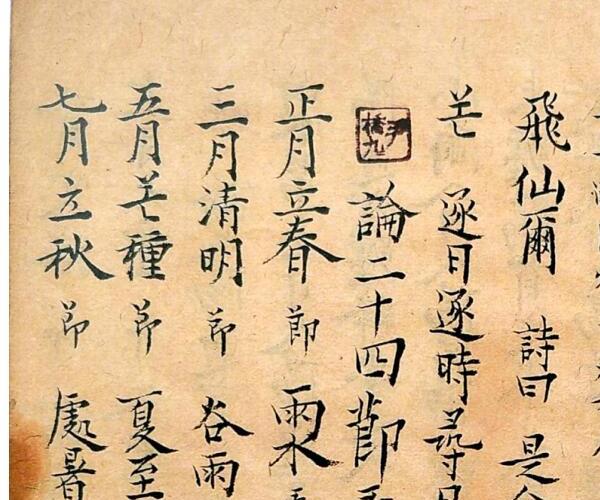 飛仙爾 詩曰 是
芒 逐日逐時尋
論二十四節
正月立春 節 雨水
三月清明 节 谷雨
五月芒種 节 夏至
七月立秋 节 處暑